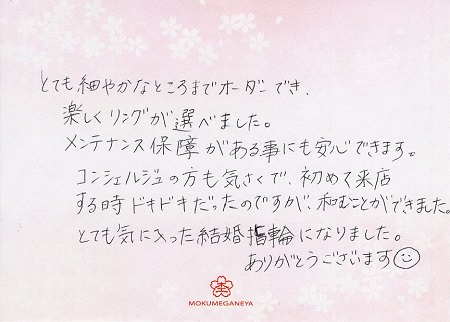 とても細やかなところまでオーダーでき、
楽しくリングが選べました。
メンテナンス保障がある事にも安心できます。
コンシェルジュの方も気さくで、初めて来店
する時ドキドキだったのですが、和むことができました。
とても気に入った結婚指輪になりました。
ありがとうございます
MOKUMEGANEYA